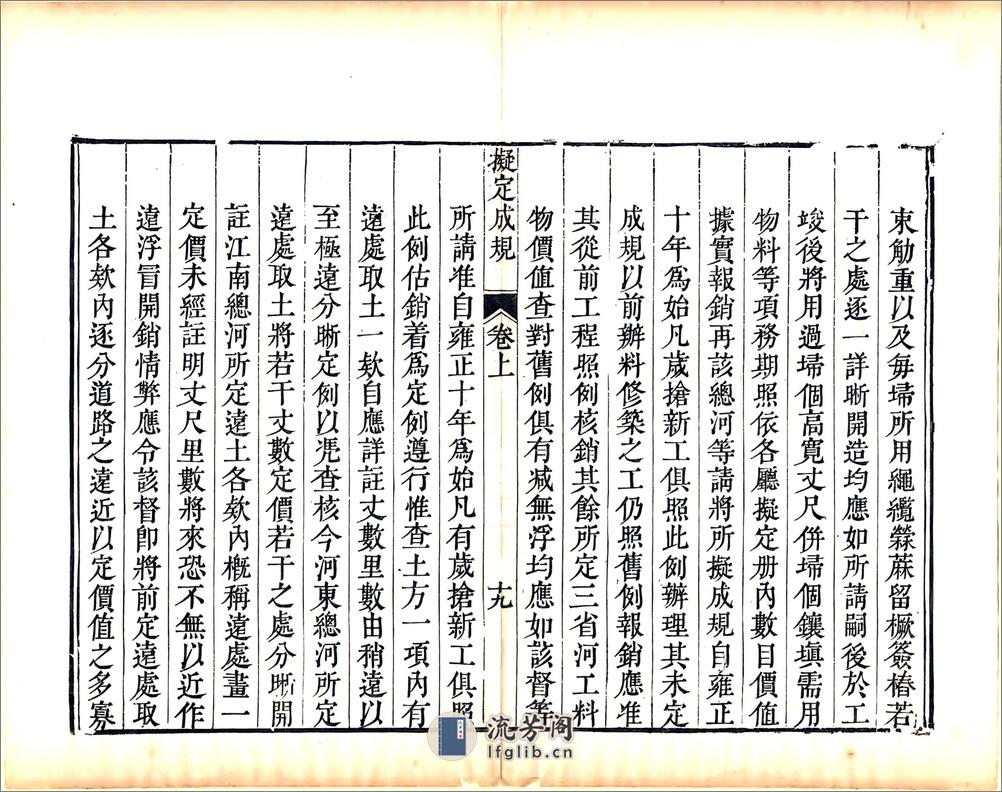 束觔重以及每埽所用繩纜檾蔴留橛簽樁若
干之處逐一詳晰開造均應如所請嗣後於工
竣後將用過埽個高寬丈尺併埽個鑲填需用
物料等項務期照依各廳擬定册內數目價值
據實報銷再該總河等請將所擬成規自雍正
十年爲始凡歲搶新工俱照此例辦理其未定
成規以前辦料修築之工仍照舊例報銷應准
其從前工程照例核銷其餘所定三省河工料
物價值查對舊例俱有减無浮均應如該督等
擬定成規 卷上 十九
所請准自雍正十年爲始凡有歲搶新工俱照
此例估銷着爲定例遵行惟查土方一項內有
遠處取土一欵自應詳註丈數里數由稍遠以
至極遠分晰定例以凴查核今河東總河所定
遠處取土將若干丈數定價若干之處分晰開
註江南總河所定遠土各欵內槪稱遠處畫一
定價未經註明丈尺里數將來恐不無以近作
遠浮冒開銷情弊應令該督卽將前定遠處取
土各欵內逐分道路之遠近以定價值之多寡
流芳阁
lfglib.cn